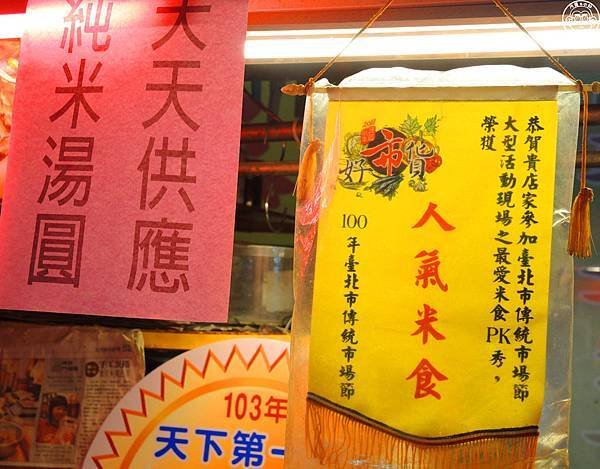 天天供應
純米湯圓
恭賀貴店家參加臺北市傳統市場節
大型活動現場之最愛米食PK秀，
榮獲
人氣米食
100年臺北市傳統市場節
好市貨
103年
天下第一